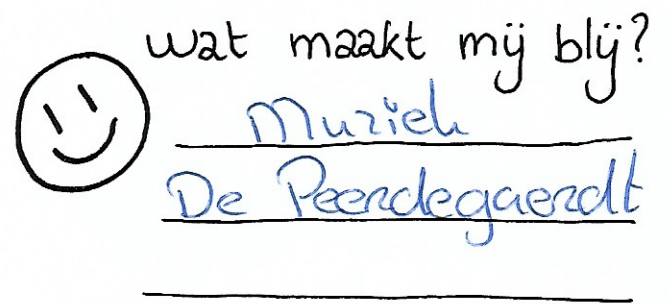 wat maakt mij blij?
Muziek
De Peerdegaerdt